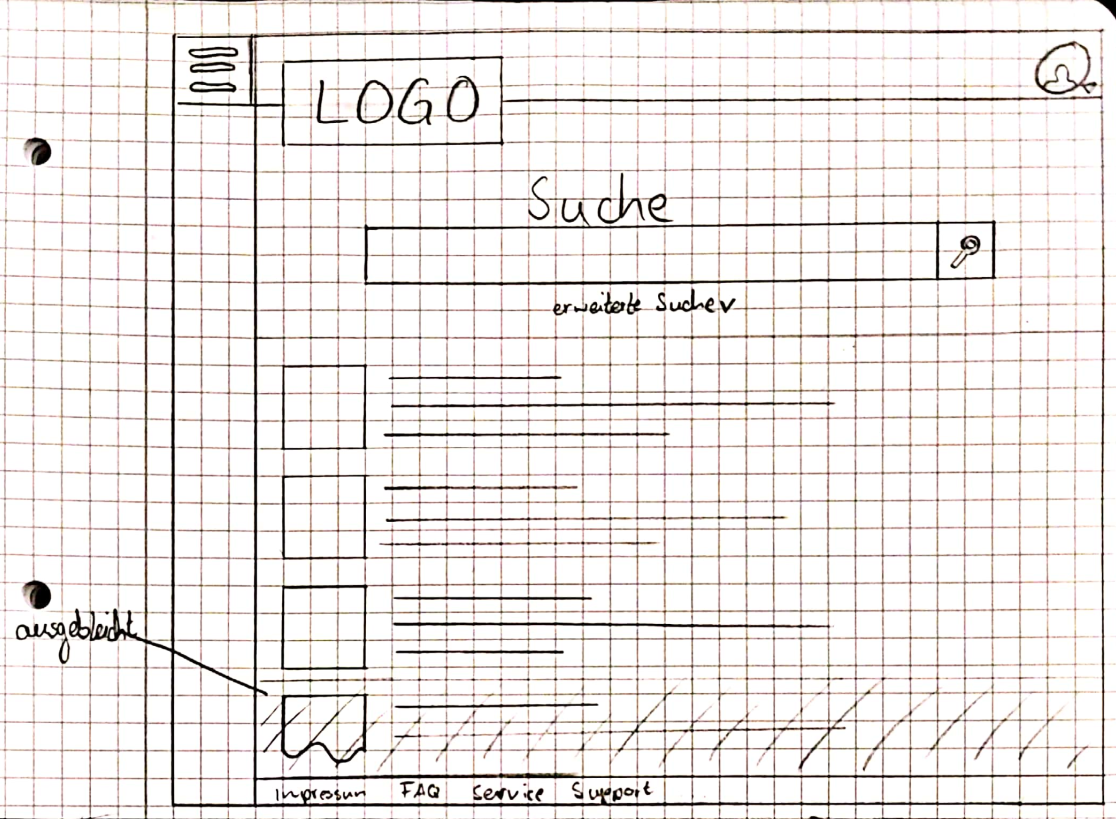 LOGO
Suche
erweiterte Suche
ausgebleicht
Impressum FAQ Service Support